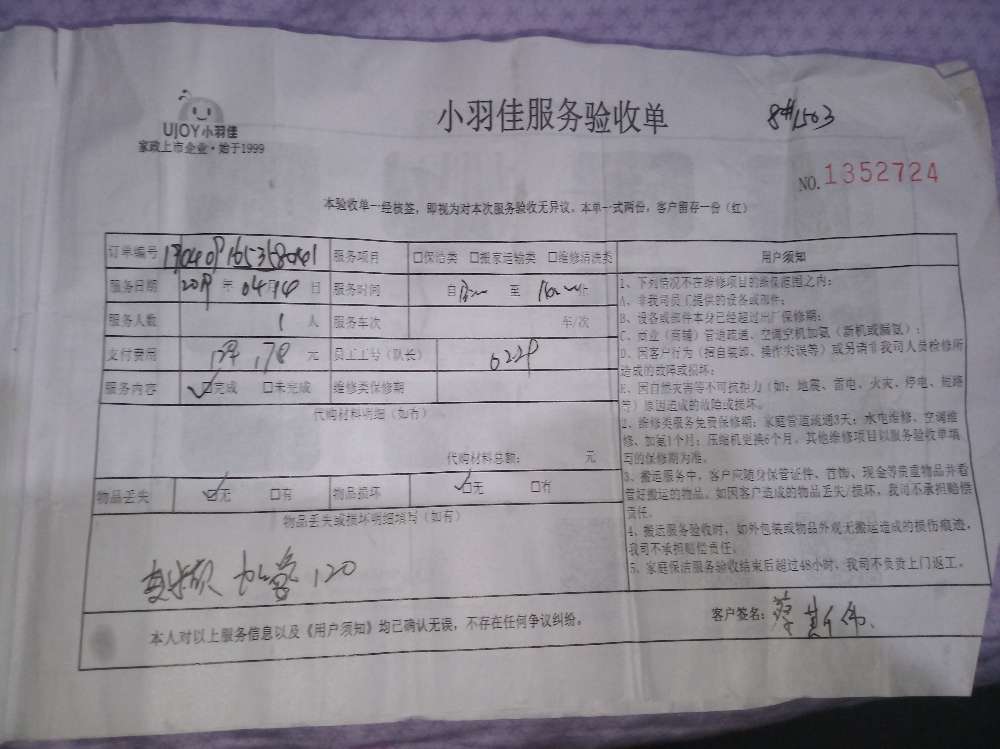 UJOY小羽佳
家政上市企业·始于1999
小羽佳服务验收单
8#1503
NO.1352724
本验收单一经核签，即视为对本次服务验收无异议。本单一式两份，客户留存一份（红）
订单编号 服务项目 □保洁类 □搬家运输类 □维修清洗类
服务日期 年 04月14日 服务时间 自 至 止
服务人数 1 人 服务车次 车/次
支付费用 元 员工工号（队长）
服务内容 ☑完成 □未完成 维修类保修期
代购材料明细（如有）
代购材料总额： 元
物品丢失 ☑无 □有 物品损坏 ☑无 □有
物品丢失或损坏明细填写（如有）
120
用户须知
1、下列情况不在维修项目的维保范围之内：
A、非我司员工提供的设备或部件；
B、设备或部件本身已经超过出厂保修期；
C、商业（商铺）管道疏通、空调空机加氨（新机或漏氨）；
D、因客户行为（擅自装卸、操作失误等）或另请非我司人员检修所
造成的故障或损坏；
E、因自然灾害等不可抗拒力（如：地震、雷电、火灾、停电、短路
等）原因造成的故障或损坏。
2、维修类服务免费保修期：家庭管道疏通3天；水电维修、空调维
修、加氨1个月；压缩机更换6个月。其他维修项目以服务验收单填
写的保修期为准。
3、搬运服务中，客户应随身保管证件、首饰、现金等贵重物品并看
管好搬运的物品。如因客户造成的物品丢失/损坏，我司不承担赔偿
责任。
4、搬运服务验收时，如外包装或物品外观无搬运造成的损伤痕迹，
我司不承担赔偿责任。
5、家庭保洁服务验收结束后超过48小时，我司不负责上门返工。
本人对以上服务信息以及《用户须知》均已确认无误，不存在任何争议纠纷。
客户签名：